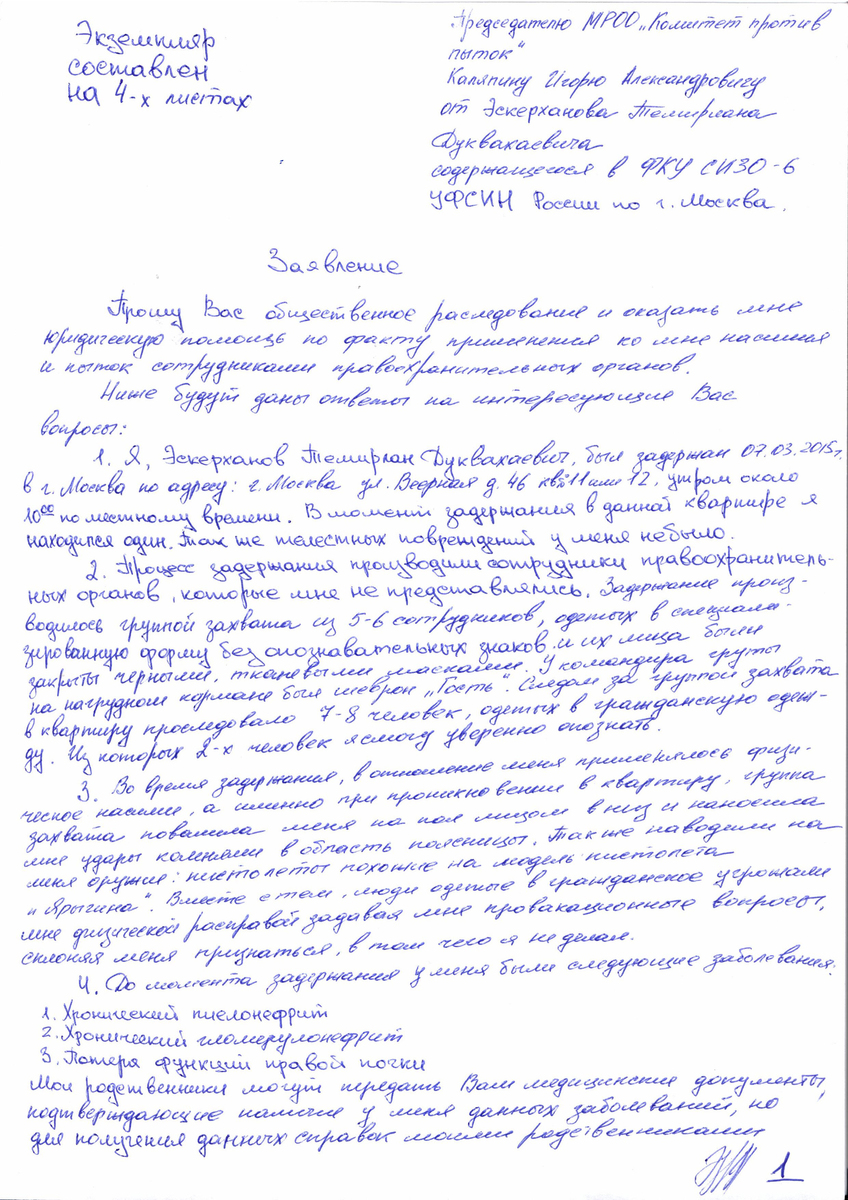 Экземпляр
составлен
на 4-х листах
Председателю МРОО „Комитет против
пыток“
Каляпину Игорю Александровичу
от Эскерханова Темирлана
Дуквахаевича
содержащегося в ФКУ СИЗО-6
УФСИН России по г. Москва.
Заявление
Прошу Вас общественное раследование и оказать мне
юридическую помощь по факту применения ко мне насилия
и пыток сотрудниками правоохранительных органов.
Ниже будут даны ответы на интересующие Вас
вопросы:
1. Я, Эскерханов Темирлан Дуквахаевич, был задержан 07.03.2015г.
в г. Москва по адресу: г. Москва ул. Веерная д. 46 кв 11 или 12, утром около
10⁰⁰ по местному времени. В момент задержания в данной квартире я
находился один. Так же телестных повреждений у меня небыло.
2. Процесс задержания производили сотрудники правоохранитель-
ных органов, которые мне не представлялись. Задержание произ-
водилось группой захвата из 5-6 сотрудников, одетых в специали-
зированную форму без опознавательных знаков и их лица были
закрыты черными, тканевыми масками. У командира групы
на нагрудном кормане был шеврон „Гость“. Следом за группой захвата
в квартиру проследовало 7-8 человек, одетых в гражданскую одеж-
ду. Из которых 2-х человек я смогу уверенно опознать.
3. Во время задержания, в отношение меня применялось физи-
ческое насилие, а именно при проникновении в квартиру, группа
захвата повалила меня на пол лицом в низ и наносила
мне удары коленями в область поясницы. Так же наводили на
меня оружие: пистолеты похожие на модель пистолета
„Ярыгина“. Вместе с тем, люди одетые в гражданское угрожали
мне физической расправой задавая мне провакационные вопросы,
склоняя меня признаться, в том чего я не делал.
4. До момента задержания у меня были следующие заболевания:
1. Хронический пиелонефрит
2. Хронический гломерулонефрит
3. Потеря функций правой почки
Мои родственники могут передать Вам медицинские документы,
подтверждающие наличие у меня данных заболеваний, но
для получения данных справок моими родственниками
1